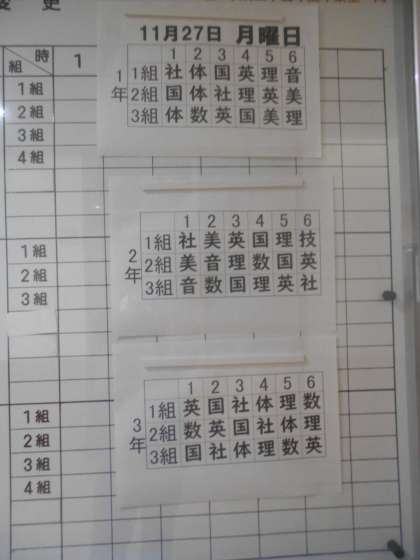 変更
11月27日 月曜日
1 2 3 4 5 6
1年
1組 社 体 国 英 理 音
2組 国 体 社 理 英 美
3組 体 数 英 国 美 理
時
組
1
1組
2組
3組
4組
1 2 3 4 5 6
2年
1組 社 美 英 国 理 技
2組 美 音 理 数 国 英
3組 音 数 国 理 英 社
1組
2組
3組
1 2 3 4 5 6
3年
1組 英 国 社 体 理 数
2組 数 英 国 社 体 理
3組 国 社 体 理 数 英
1組
2組
3組
4組